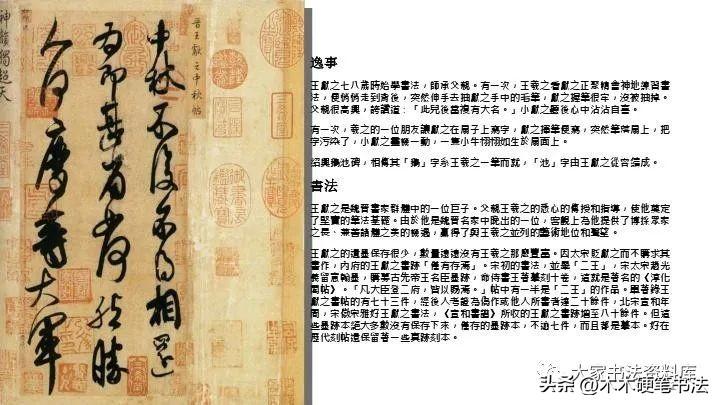 晉王獻之中秋帖
中秋不復不得相還
為即甚省如何然勝
人何慶等大軍
逸事
王獻之七八歲時始學書法，師承父親。有一次，王羲之看獻之正聚精會神地練習書
法，便悄悄走到背後，突然伸手去抽獻之手中的毛筆，獻之握筆很牢，沒被抽掉。
父親很高興，誇讚道：「此兒後當複有大名。」小獻之聽後心中沾沾自喜。
有一次，羲之的一位朋友讓獻之在扇子上寫字，獻之揮筆便寫，突然筆落扇上，把
字污染了，小獻之靈機一動，一隻小牛栩栩如生於扇面上。
紹興鵝池碑，相傳其「鵝」字系王羲之一筆而就，「池」字由王獻之從容舖成。
書法
王獻之是魏晉書家群體中的一位巨子。父親王羲之的悉心的傳授和指導，使他奠定
了堅實的筆法基礎。由於他是魏晉名家中晚出的一位，客觀上為他提供了博採眾家
之長、兼善諸體之美的機遇，贏得了與王羲之並列的藝術地位和聲望。
王獻之的遺墨保存很少，數量遠遠沒有王羲之那麼豐富。因太宗貶獻之而不購求其
書作，內府的王獻之書跡「僅有存焉」。宋初的書法，並舉「二王」，宋太宗趙光
義留意翰墨，購募古先帝王名臣墨跡，命侍書王著摹刻十卷，這就是著名的《淳化
閣帖》。「凡大臣登二府，皆以賜焉。」帖中有一半是「二王」的作品。單著錄王
獻之書帖的有七十三件，經後人考證為偽作或他人所書者達二十餘件，北宋宣和年
間，宋徽宋雅好王獻之書法，《宣和書譜》所收的王獻之書跡增至八十餘件。但這
些墨跡本絕大多數沒有保存下來，僅存的墨跡本，不過七件，而且都是摹本。好在
歷代刻帖還保留著一些真跡刻本。
大家书法资料库
头条 @木木硬笔书法